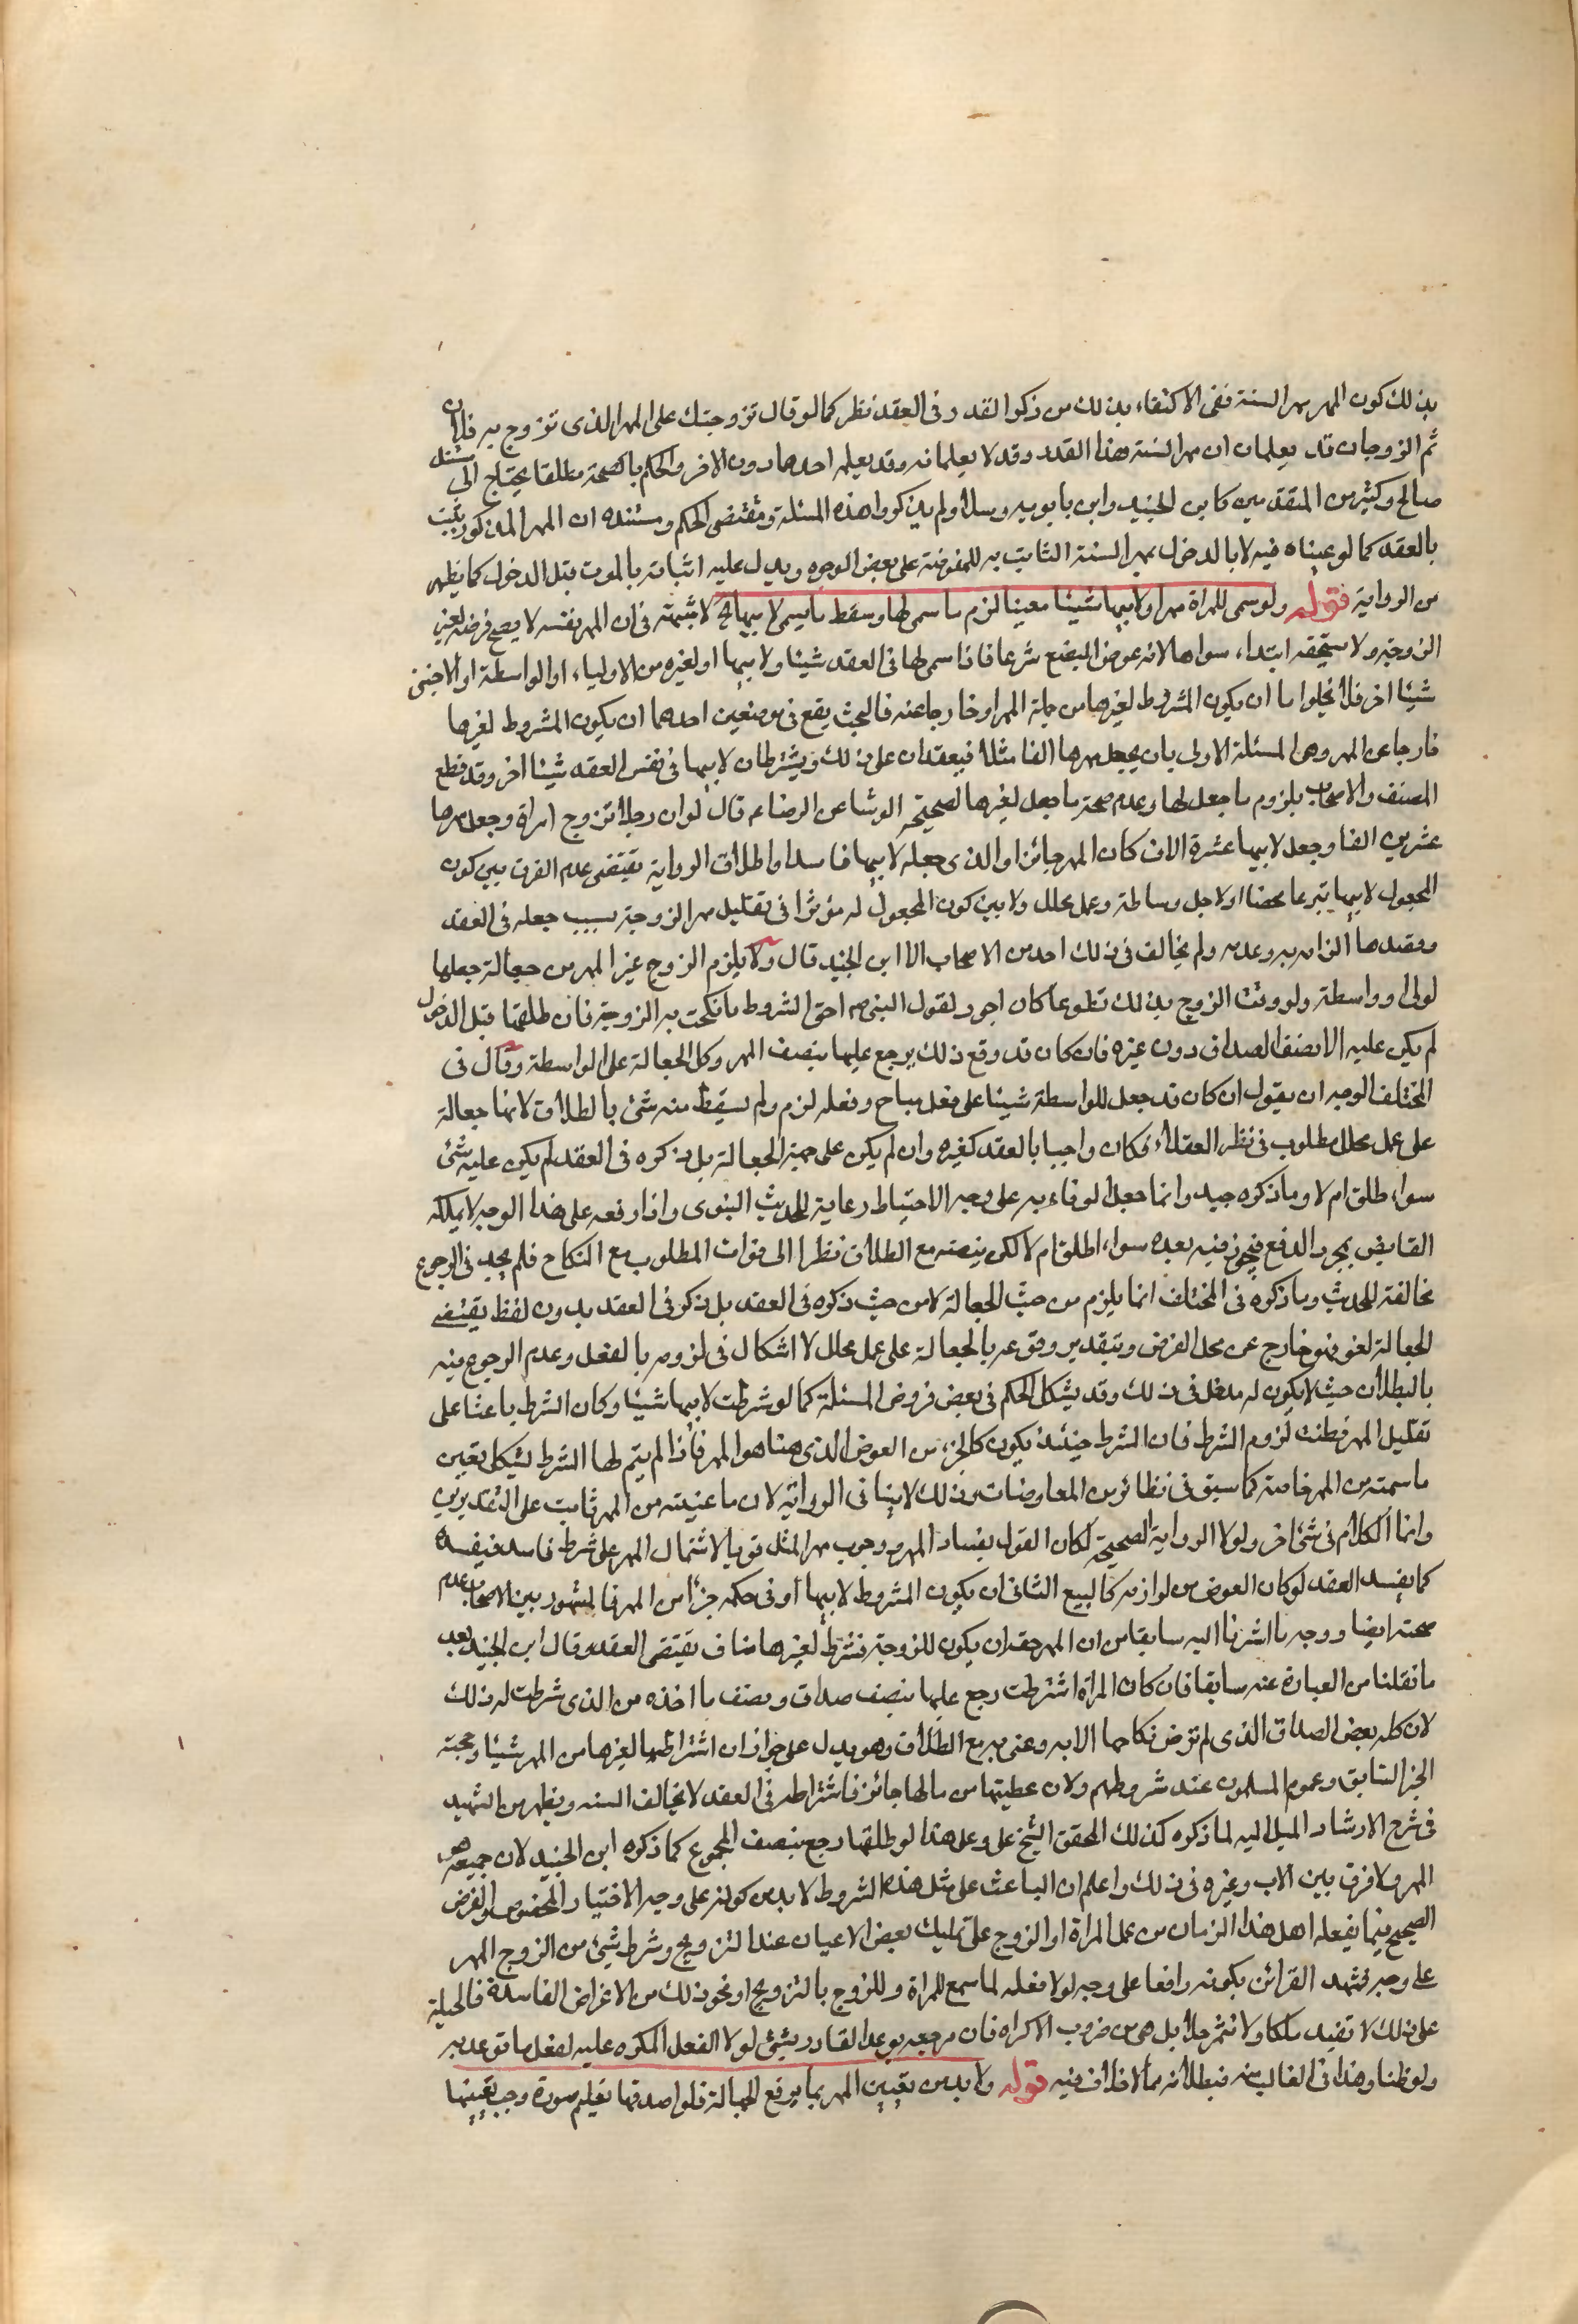 بذلك كون المهر مهر السنة ففى الاكتفاء بذلك من ذكر القدر فى العقد نظر كما لو قال تزوجتك على المهر الذى تزوج به فلان
ثم الزوجان قد يعلمان ان مهر السنة هذا القدر وقد لا يعلمانه وقد يعلمه احدهما دون الاخر والحكم بالصحة مطلقا يحتاج الى مستند
صالح وكثير من المتقدمين كابن الجنيد وابن بابويه وسلار لم يذكروا هذه المسئلة ومقتضى الحكم ومستنده ان المهر المذكور يثبت
بالعقد كما لو عيناه فيه لا بالدخول كمهر السنة الثابت به للمفوضة على بعض الوجوه ويدل عليه اثباته بالموت قبل الدخول كما يظهر
من الرواية قوله ولو سمى للمراة مهرا ولابيها شيئا معينا لزم ما سمى لها وسقط ما يسمى لابيها الخ لا شبهة فى ان المهر نفسه لا يصح فرضه لغير
الزوجة ولا يستحقه ابتداء سواها لانه عوض البضع شرعا فاذا سمى لها فى العقد شيئا ولابيها او لغيره من الاولياء او الواسطة او الاجنبى
شيئا اخر فلا يخلوا ما ان يكون المشروط لغيرها من جملة المهر او خارجا عنه فالبحث يقع فى موضعين احدهما ان يكون المشروط لغيرها
خارجا عن المهر وهى المسئلة الاولى بان يجعل مهرها الفا مثلا فيعقدان على ذلك ويشترطان لابيها فى نفس العقد شيئا اخر وقد قطع
المصنف والاصحاب بلزوم ما جعل لها وعدم صحة ما جعل لغيرها لصحيحة الوشا عن الرضا ع قال لو ان رجلا تزوج امراة وجعل مهرها
عشرين الفا وجعل لابيها عشرة الاف كان المهر جائزا والذى جعله لابيها فاسدا واطلاق الرواية يقتضى عدم الفرق بين كون
المجعول لابيها تبرعا محضا او لاجل وساطة وعمل محلل ولا بين كون المجعول له مؤثرا فى تقليل مهر الزوجة بسبب جعله فى العقد
وقصدها الزامه به وعدمه ولم يخالف فى ذلك احد من الاصحاب الا ابن الجنيد قال ولا يلزم الزوج غير المهر من جعالة جعلها
لولى او واسطة ولو وفى الزوج بذلك تطوعا كان اجود لقول النبى ص احق الشروط ما نكحت به الزوجة فان طلقها قبل الدخول
لم يكن عليه الا نصف الصداق دون غيره فان كان قد وقع ذلك يرجع عليها بنصف المهر وكل الجعالة على الواسطة وقال فى
المختلف الوجه ان يقول ان كان قد جعل للواسطة شيئا على فعل مباح وفعله لزم ولم يسقط منه شئ بالطلاق لانها جعالة
على عمل محلل مطلوب فى نظر العقلاء فكان واجبا بالعقد كغيره وان لم يكن على جهة الجعالة بل ذكره فى العقد لم يكن عليه شئ
سواء طلق ام لا وما ذكره جيد وانما جعل الوفاء به على وجه الاحتياط رعاية للحديث النبوى واذا رفعه على هذا الوجه لا يملكه
القابض بمجرد الدفع فيجوز فيه بعده سواء اطلق ام لا لكن ينصفه مع الطلاق نظرا الى فوات المطلوب مع النكاح فلم يجد فى الرجوع
مخالفة للحديث وما ذكره فى المختلف انما يلزم من حيث الجعالة لا من حيث ذكره فى العقد بل ذكر فى العقد بدون لفظ يقتضى
الجعالة لغو فهو خارج عن محل الفرض وبتقدير وقوعه بالجعالة على عمل محلل لا اشكال فى لزومه بالفعل وعدم الرجوع فيه
بالبطلان حيث لا يكون له مدخل فى ذلك وقد يشكل الحكم فى بعض فروض المسئلة كما لو شرطت لابيها شيئا وكان الشرط باعثا على
تقليل المهر فظنت لزوم الشرط فان الشرط حينئذ يكون كالجزء من العوض الذى هنا هو المهر فاذا لم يتم لها الشرط يشكل تعين
ما سمته من المهر خاصة كما سبق فى نظائره من المعاوضات وذلك لا ينافى الرواية لان ما عنيته من المهر ثابت على التقديرين
وانما الكلام فى شئ اخر ولولا الرواية الصحيحة لكان القول بفساد المهر ووجوب مهر المثل قويا لاشتمال المهر على شرط فاسد فيفسده
كما يفسد العقد لو كان العوض من لوازمه كالبيع الثانى ان يكون المشروط لابيها او فى حكمه جزأ من المهر فالمشهور بين الاصحاب عدم
صحته ايضا ووجهه ما اشرنا اليه سابقا من ان المهر حقه ان يكون للزوجة فشرط لغيرها مناف يقتضى العقد وقال ابن الجنيد بعد
ما نقلنا من العبارة عنه سابقا فان كان المراة اشترطت رجع عليها بنصف صداق ونصف ما اخذه من الذى شرطت له ذلك
لان كله بعض الصداق الذى لم ترض نكاحها الا به وعنى به مع الطلاق وهو يدل على جواز ان اشتراطها لغيرها من المهر شيئا وحجته
الخبر السابق وعموم المسلمون عند شروطهم ولان عطيتها من مالها جائز فاشتراطه فى العقد لا يخالف السنه ويظهر من الشهيد
فى شرح الارشاد الميل اليه لما ذكره كذلك المحقق الشيخ على وعلى هذا لو طلقها رجع بنصف المجموع كما ذكره ابن الجنيد لان جميعه هو
المهر ولا فرق بين الاب وغيره فى ذلك واعلم ان الباعث على مثل هذه الشروط لا بد من كونه على وجه الاختيار المخصوص والغرض
الصحيح فيما يفعله اهل هذا الزمان من عمل المراة او الزوج على تمليك بعض الاعيان عند التزويج وشرط شئ من الزوج المهر
على وجه تشهد القرائن بكونه رافعا على وجه لولا فعله لما سمع للمراة وللزوج بالتزويج او نحو ذلك من الاغراض الفاسدة فالحيلة
على ذلك لا تفيد ملكا ولا تثمر حلا بل هى من ضروب الاكراه فان مرجعه يوعد القادر بشئ لولا الفعل المكره عليه لفعل ما توعد به
ولو ظنا وهذا فى الغالب منه فبطلانه مما لا خلاف فيه قوله ولا بد من تعيين المهر بما يرفع الجهالة فلو اصدقها تعليم سورة وجب تعيينها